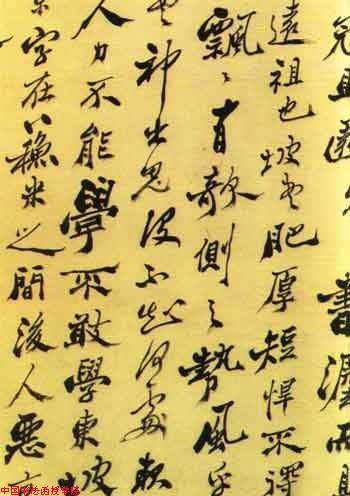 遠祖也坡書肥厚短悍不擇
飄〻有欹側之勢風乎
書神出鬼没不知何處
人力不能學不敢學東坡
字在蘇米之間後人惡
中国书法函授学院